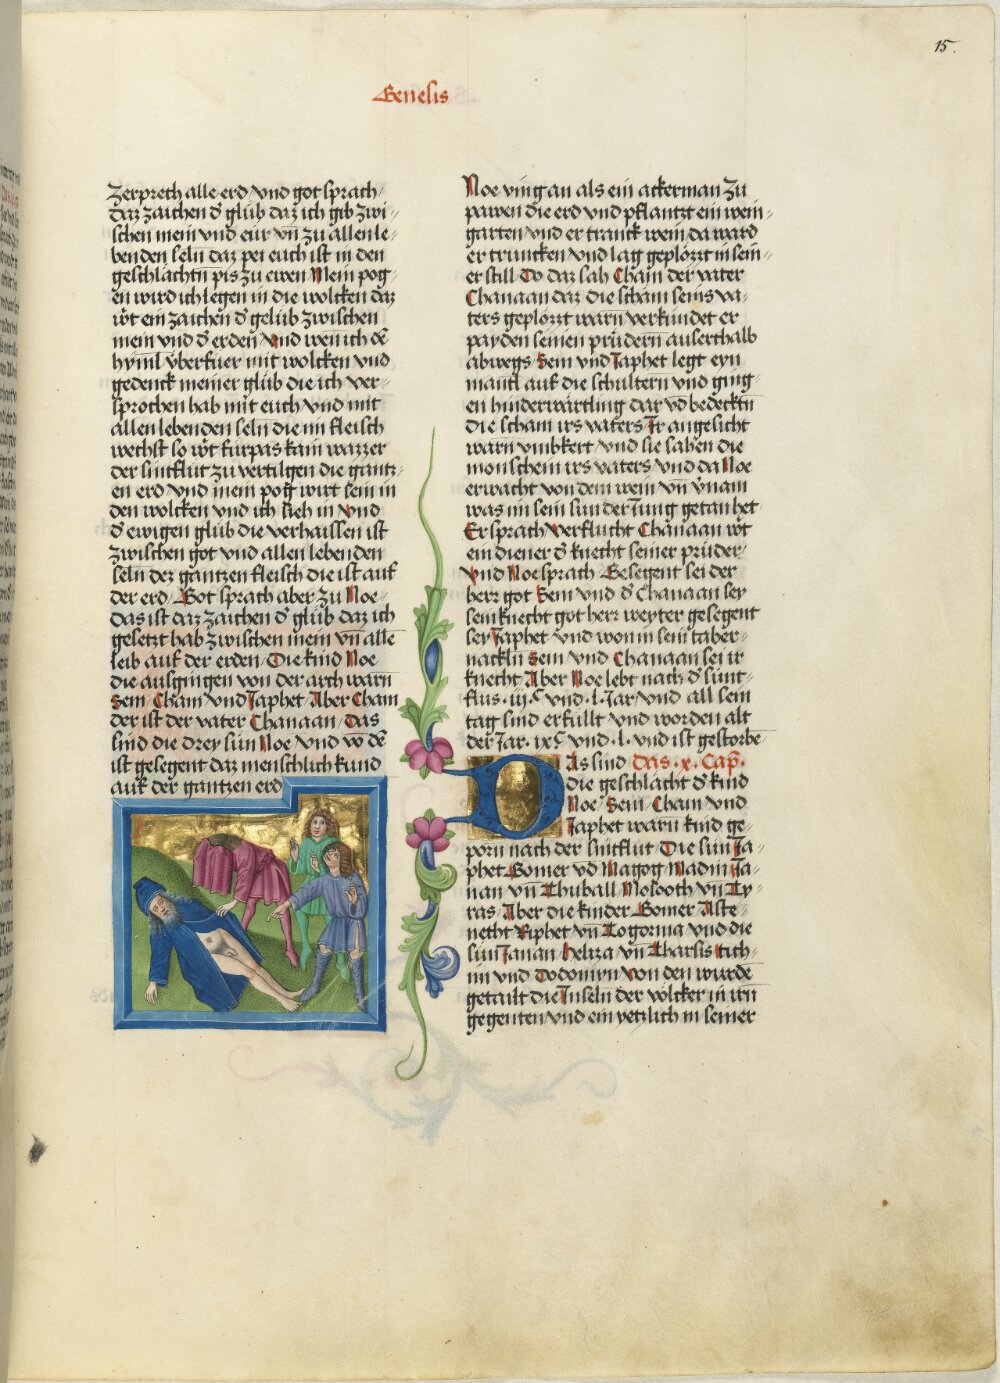 15.
Genesis
zerprech alle erd vnd got sprach
daz zaichen d' glub daz ich gib zwi-
schen mein vnd eur vn̄ zu allen le-
benden seln daz pei euch ist in den
geschlachtn pis zu ewen Mein pog-
en wird ich legen in die wolcken daz
wt ein zaichen d' gelub zwischen
mein vnd d' erden vnd wen ich de
hyml vberfuer mit wolcken vnd
gedenck meiner glub die ich ver-
sprochen hab mit euch vnd mit
allen lebenden seln die im fleisch
wechst so wt furpas kain wazzer
der sintflut zu vertilgen die gantz-
en erd vnd mein pog wirt sein in
den wolcken vnd ich sieh in vnd
d' ewigen glub die verhaissen ist
zwischen got vnd allen lebenden
seln dez gantzen fleisch die ist auf
der erd Got sprach aber zu Noe
das ist daz zaichen d' glub daz ich
gesetzt hab zwischen mein vn̄ alle
leib auf der erden Die kind Noe
die ausgingen von der arch warn
Sem Cham vnd Japhet Aber Cham
der ist der vater Chanaan Das
sind die drey sun Noe vnd vo de
ist gesegent daz menschlich kund
auf der gantzen erd
Noe ving an als ein ackerman zu
pawen die erd vnd pflantzt ein wein-
garten vnd er tranck wein da ward
er truncken vnd lag geplözzt in sein-
er still Do daz sah Cham der vater
Chanaan daz die scham seins va-
ters geplözzt warn verkundet er
payden seinen prudern auserthalb
abwegs Sem vnd Japhet legt eyn
mantl auf die schultern vnd ging-
en hinderwärtling dar vd bedecktn
die scham irs vaters Ir angesicht
warn vmbkert vnd sie sahen die
monschein irs vaters vnd da Noe
erwacht von dem wein vn̄ v'nam
was im sein sun der iung getan het
Er sprach Verflucht Chanaan wt
ein diener d' knecht seiner prüder
vnd Noe sprach Gesegent sei der
herr got Sem vnd d' Chanaan sey
sein knecht got herr weyter gesegent
sey Japhet vnd won in sein taber-
nackln Sem vnd Chanaan sei ir
knecht Aber Noe lebt nach d' sünt-
flus .iij.C vnd .l. Jar vnd all sein
tag sind erfullt vnd worden alt
der Jar .ixC vnd .l. vnd ist gestorbe
DAs sind Das .x. Cap.
die geschlächt d' kind
Noe Sem Cham vnd
Japhet warn kind ge-
porn nach der sintflut Die sun Ja-
phet Gomer vd Magog Madin Ja-
nan vn̄ Thuball Mosooth vn̄ Ty-
ras Aber die kinder Gomer Aste-
necht Riphet vn̄ Togorma vnd die
sun Janan Heliza vn̄ Tharsis tich-
im vnd Dodomim von den wurde
getailt die Inseln der volcker in irn
gegenten vnd ein yetzlich in seiner